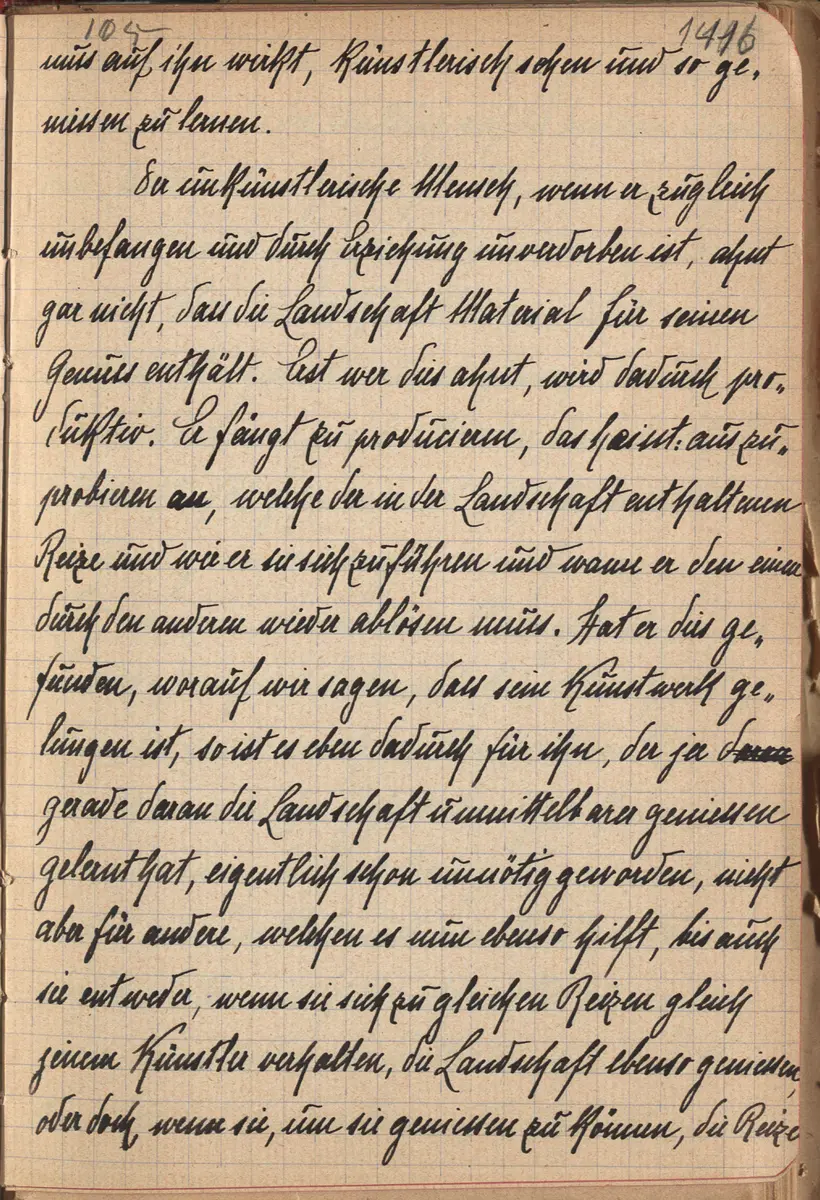 105 1416
mus auf ihn wirkt, künstlerisch sehen und so ge„
niessen zu lernen.
Der unkünstlerische Mensch, wenn er zugleich
unbefangen und durch Erziehung unverdorben ist, ahnt
gar nicht, dass die Landschaft Material für seinen
Genuss enthält. Erst wer dies ahnt, wird dadurch pro„
duktiv. Er fängt zu producieren, das heisst: auszu„
probieren an, welche der in der Landschaft enthaltenen
Reize und wie er sie sich zuführen und wann er den einen
durch den anderen wieder ablösen muss. Hat er dies ge„
funden, worauf wir sagen, dass sein Kunstwerk ge„
lungen ist, so ist es eben dadurch für ihn, der ja daran
gerade daran die Landschaft unmittelbarer geniessen
gelernt hat, eigentlich schon unnötig geworden, nicht
aber für andere, welchen es nun ebenso hilft, bis auch
sie entweder, wenn sie sich zu gleichen Reizen gleich
jenem Künstler verhalten, die Landschaft ebenso geniessen,
oder doch, wenn sie, um sie geniessen zu können, die Reize